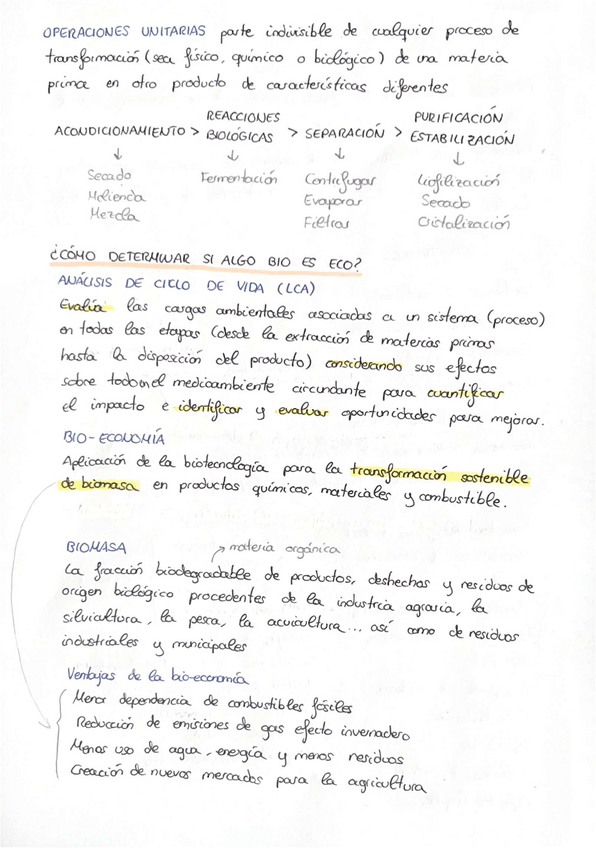 OPERACIONES UNITARIAS parte indivisible de cualquier proceso de
transformación (sea físico, químico o biológico) de una materia
prima en otro producto de características diferentes
ACONDICIONAMIENTO > REACCIONES BIOLÓGICAS > SEPARACIÓN > PURIFICACIÓN ESTABILIZACIÓN
↓ ↓ ↓ ↓
Secado Fermentación Centrifugar Liofilización
Molienda Evaporar Secado
Mezcla Filtrar Cristalización
¿CÓMO DETERMINAR SI ALGO BIO ES ECO?
ANÁLISIS DE CICLO DE VIDA (LCA)
Evalúa las cargas ambientales asociadas a un sistema (proceso)
en todas las etapas (desde la extracción de materias primas
hasta la disposición del producto) considerando sus efectos
sobre todo en el medioambiente circundante para cuantificar
el impacto e identificar y evaluar oportunidades para mejorar.
BIO-ECONOMÍA
Aplicación de la biotecnología para la transformación sostenible
de biomasa en productos químicos, materiales y combustible.
BIOMASA → materia orgánica
La fracción biodegradable de productos, deshechos y residuos de
origen biológico procedentes de la industria agraria, la
silvicultura, la pesca, la acuicultura... así como de residuos
industriales y municipales
Ventajas de la bio-economía
Menor dependencia de combustibles fósiles
Reducción de emisiones de gas efecto invernadero
Menos uso de agua, energía y menos residuos
Creación de nuevos mercados para la agricultura